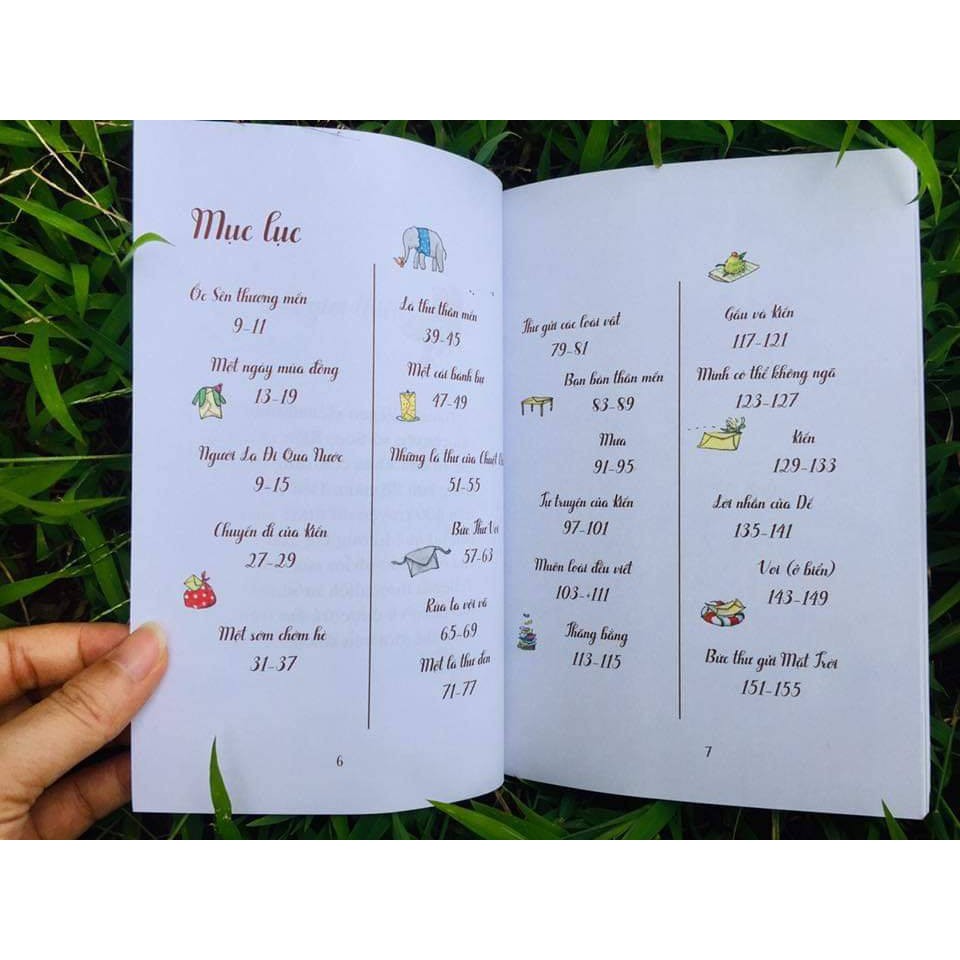 Mục lục
Ốc Sên thương mến
9-11
Một ngày mùa đông
13-19
Người La Đi Qua Nước
9-15
Chuyến đi của Kiến
27-29
Một sớm chớm hè
31-37
Lá thư thân mến
39-45
Một cái bánh bự
47-49
Những lá thư của Chuột
51-55
Bức Thư Voi
57-63
Rùa ta vội vã
65-69
Một lá thư đen
71-77
6
Thư gửi các loài vật
79-81
Bạn bàn thân mến
83-89
Mưa
91-95
Tự truyện của Kiến
97-101
Muôn loài đều viết
103-111
Thăng bằng
113-115
Gấu và Kiến
117-121
Mình có thể không ngã
123-127
Kiến
129-133
Lời nhắn của Dế
135-141
Voi (ở biển)
143-149
Bức thư gửi Mặt Trời
151-155
7